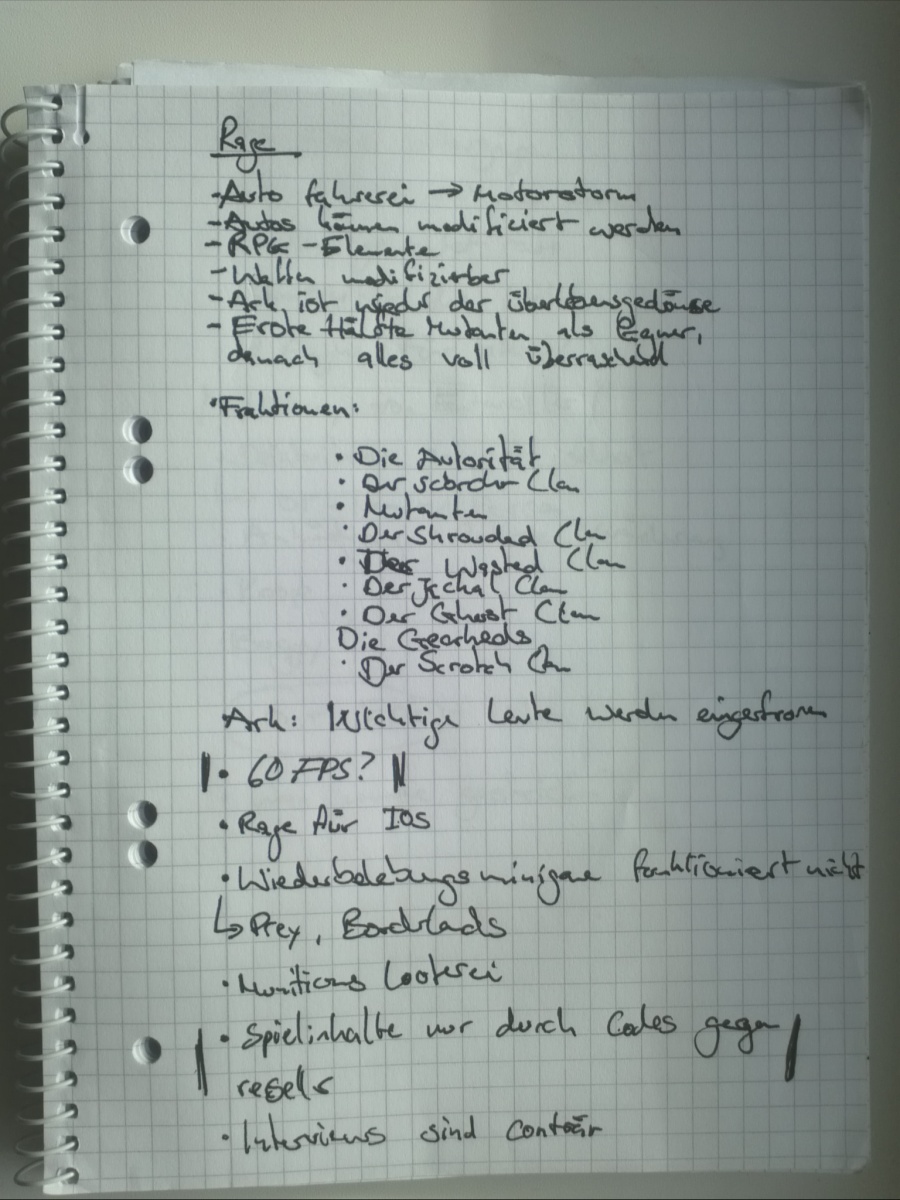 Rage
- Auto fahrerei → Motorstorm
- Autos können modificiert werden
- RPG - Elemente
- Waffen modifizierbar
- Ark ist wieder der Überlebensgedönse
- Erste Hälfte Mutanten als Gegner,
danach alles voll überraschend
• Fraktionen:
• Die Autorität
• Der Clan
• Mutanten
• Der Shrouded Clan
• Der Wasted Clan
• Der Jackal Clan
• Der Ghost Clan
Die Gearheads
• Der Scrotch Clan
Ark: Wichtige Leute werden eingefroren
• 60 FPS?
• Rage für IOS
• Wiederbelebungsminigame funktioniert nicht
↳ Prey, Borderlands
• Munitions Looterei
• Spielinhalte nur durch Codes gegen
resells
• Interviews sind conträr